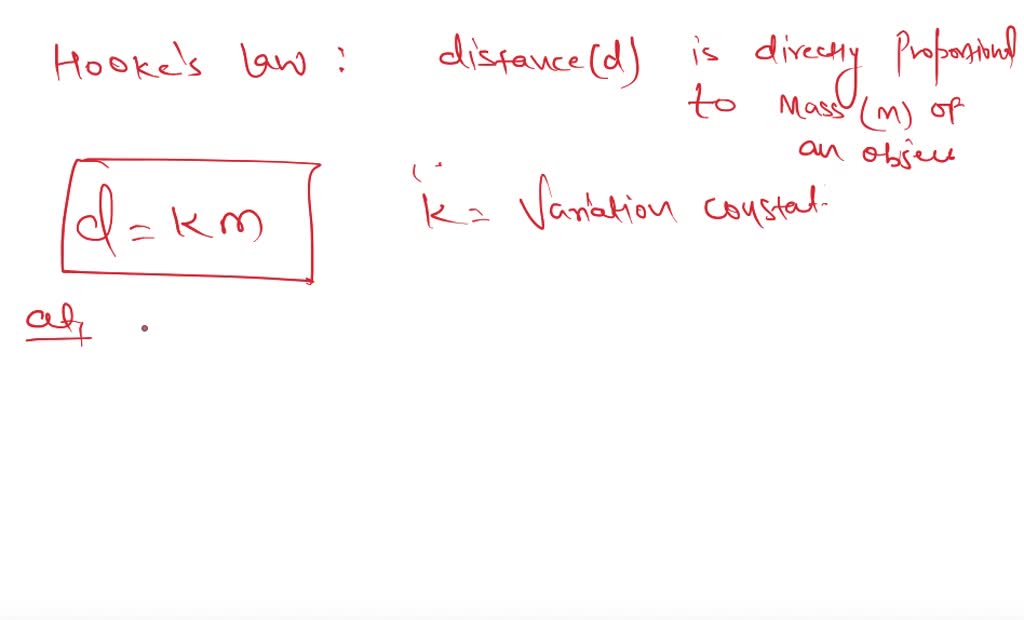 Hooke's law : distance(d) is directly Proportional
to Mass (m) of
an object
d = km
k = Variation constat.
at,